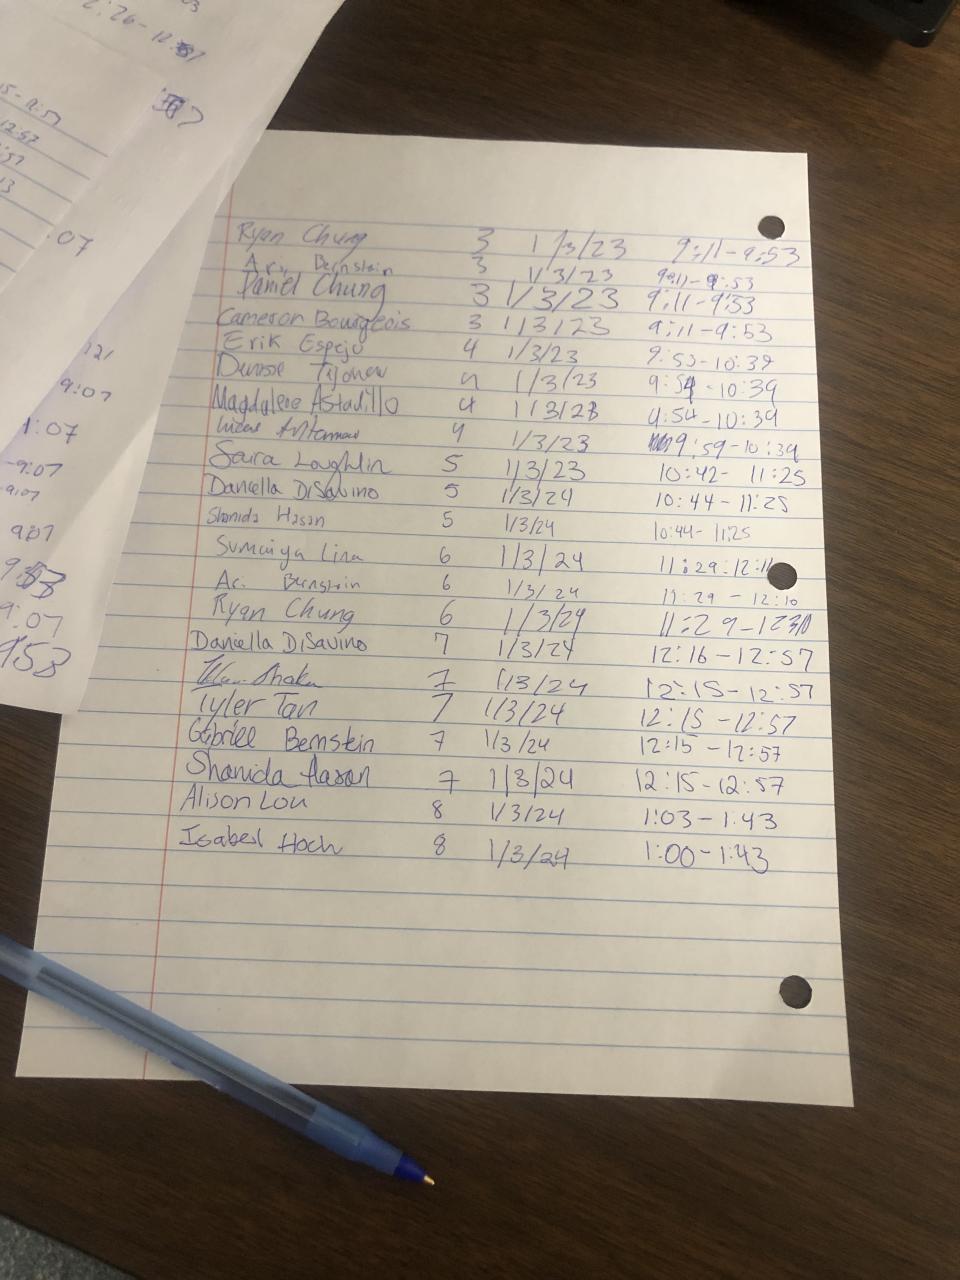 2:26-12:57
12:57
:07
9:07
1:07
-9:07
9:07
907
9:53
9:07
953
Ryan Chung 3 1/3/23 9:11-9:53
Ari Bernstein 3 1/3/23 9:11-9:53
Daniel Chung 3 1/3/23 9:11-9:53
Cameron Bourgeois 3 1/3/23 9:11-9:53
Erik Espejo 4 1/3/23 9:53-10:39
Denise 4 1/3/23 9:54-10:39
Magdalene Astadillo 4 1/3/23 9:54-10:39
4 1/3/23 9:59-10:39
Saira Loughlin 5 1/3/23 10:42-11:25
Daniella DiSavino 5 1/3/24 10:44-11:25
Shanida Hasan 5 1/3/24 10:44-11:25
Sumaiya Lina 6 1/3/24 11:29-12:11
Ari Bernstein 6 1/3/24 11:29-12:10
Ryan Chung 6 1/3/24 11:29-
Daniella DiSavino 7 1/3/24 12:16-12:57
7 1/3/24 12:15-12:57
Tyler Tan 7 1/3/24 12:15-12:57
Gabriell Bernstein 7 1/3/24 12:15-12:57
Shanida Hasan 7 1/3/24 12:15-12:57
Alison Lou 8 1/3/24 1:03-1:43
Isabel Hoch 8 1/3/24 1:00-1:43